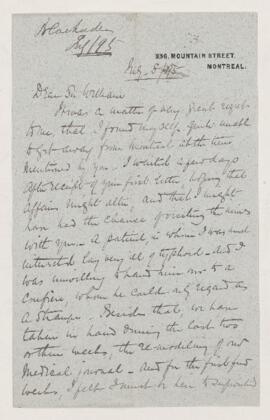 Blackader
July/95
236, MOUNTAIN STREET,
MONTREAL.
July 5/95
Dear Sir William
It was a matter of very great regret
to me, that I found myself quite unable
to get away from Montreal at the time
mentioned by you. I waited a few days
after receipt of your first letter, hoping that
affairs might alter, and that I might
have had the chance of visiting the
with you. A patient, in whom I was much
interested lay very ill of typhoid - and I
was unwilling to hand him over to a
confrère, whom he could only regard as
a stranger. Besides that, we have
taken in hand during the last two
or three weeks, the re-modeling of our
Medical journal - and for the first few
weeks, I felt I must be here to